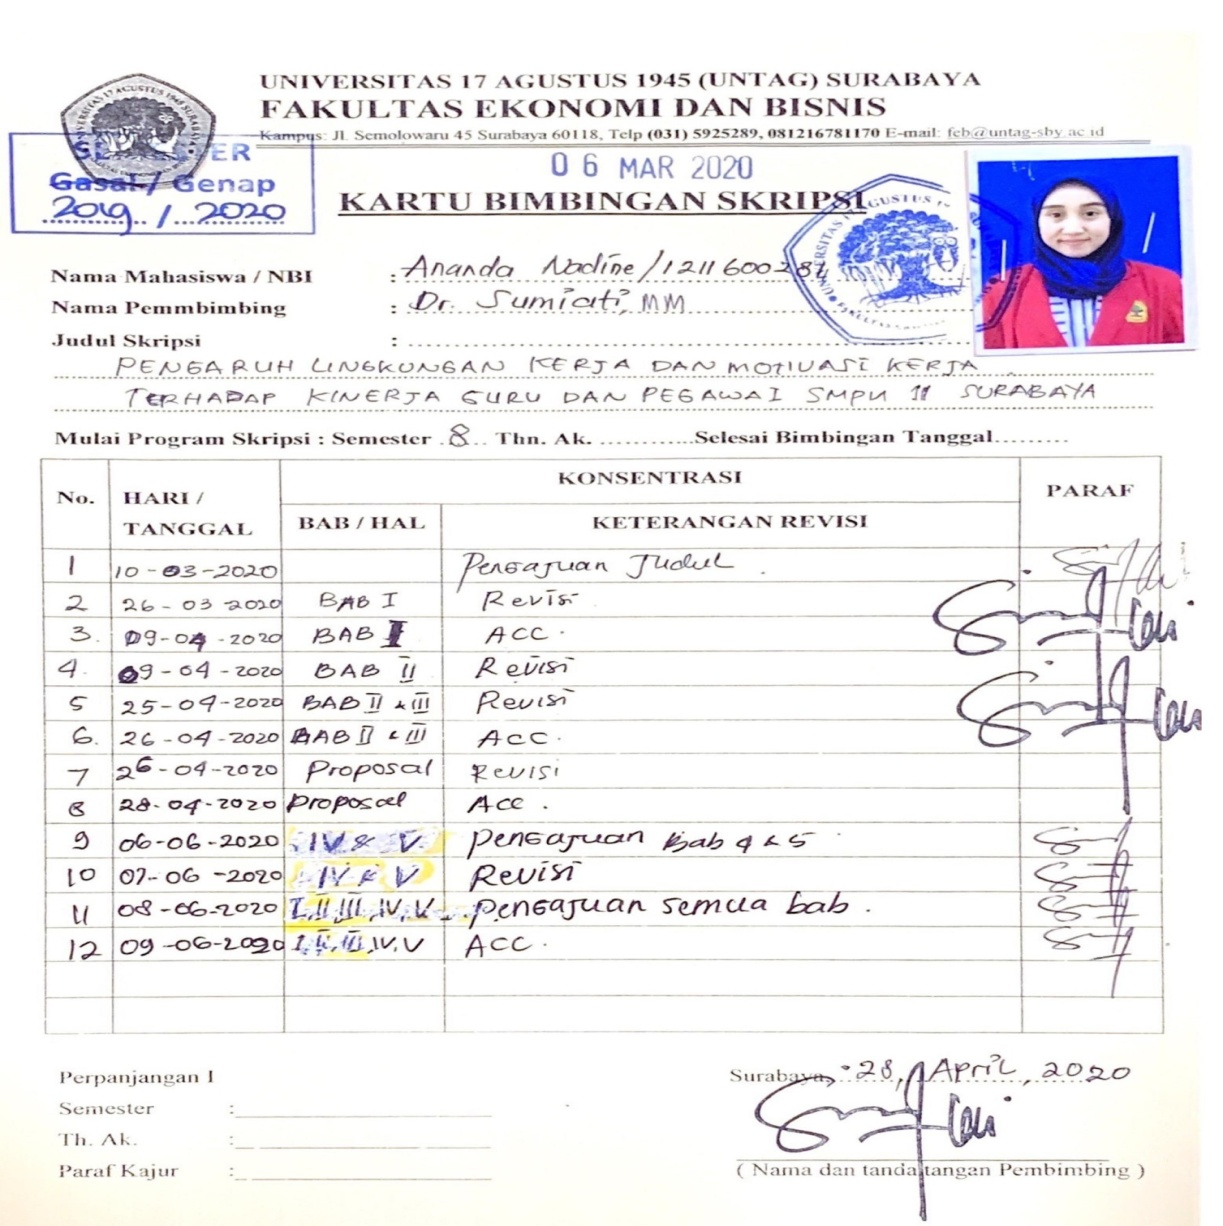 UNIVERSITAS 17 AGUSTUS 1945 (UNTAG) SURABAYA
FAKULTAS EKONOMI DAN BISNIS
Kampus: Jl. Semolowaru 45 Surabaya 60118, Telp (031) 5925289, 081216781170 E-mail: feb@untag-sby.ac.id
SEMESTER
Gasal / Genap
2019 / 2020
06 MAR 2020
KARTU BIMBINGAN SKRIPSI
Nama Mahasiswa / NBI : Ananda Nadine / 1211600281
Nama Pemmbimbing : Dr. Sumiati, MM
Judul Skripsi :
PENGARUH LINGKUNGAN KERJA DAN MOTIVASI KERJA
TERHADAP KINERJA GURU DAN PEGAWAI SMPN 11 SURABAYA
Mulai Program Skripsi : Semester 8 Thn. Ak. ............Selesai Bimbingan Tanggal.........
No. HARI / TANGGAL KONSENTRASI PARAF
BAB / HAL KETERANGAN REVISI
1 10-03-2020 Pengajuan Judul
2 26-03-2020 BAB I Revisi
3. 09-04-2020 BAB I ACC.
4. 09-04-2020 BAB II Revisi
5 25-04-2020 BAB II & III Revisi
6. 26-04-2020 BAB II & III ACC.
7 26-04-2020 Proposal Revisi
8 28-04-2020 Proposal Acc.
9 06-06-2020 IV & V Pengajuan Bab 4 & 5
10 07-06-2020 IV & V Revisi
11 08-06-2020 I, II, III, IV, V Pengajuan semua bab.
12 09-06-2020 I, II, III, IV, V ACC.
Perpanjangan I
Semester :
Th. Ak. :
Paraf Kajur :
Surabaya, 28, April, 2020
( Nama dan tanda tangan Pembimbing )